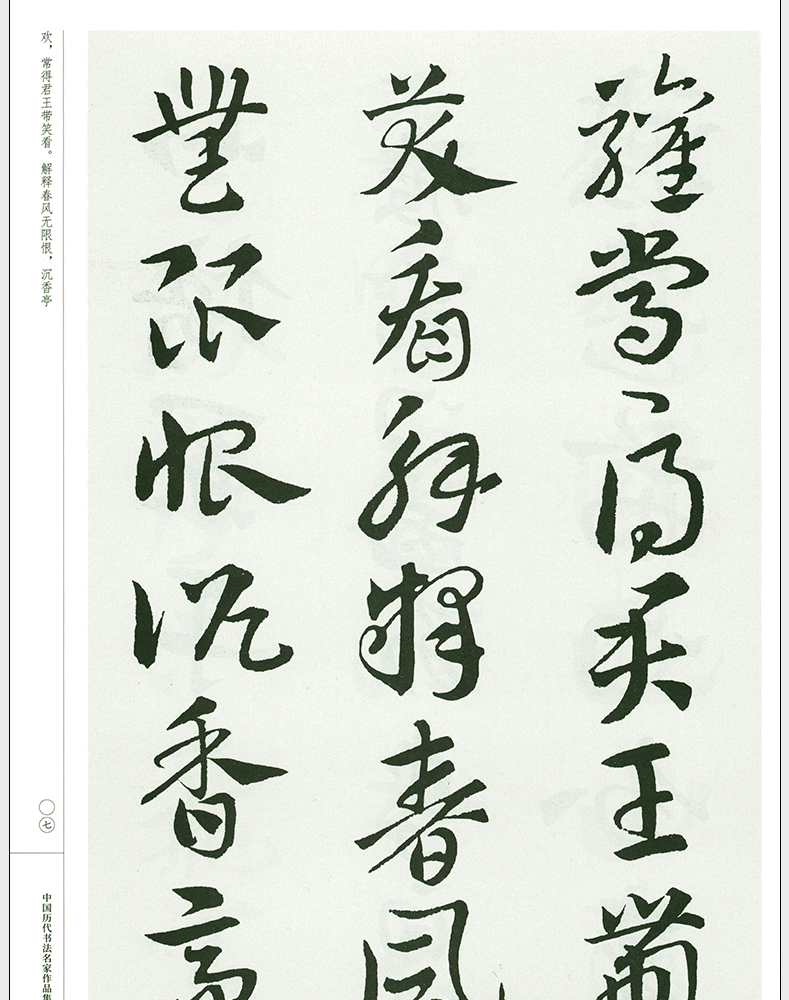 讙常得君王帶
笑看解釋春風
無限恨沉香亭
欢，常得君王带笑看。解释春风无限恨，沉香亭
〇七
中国历代书法名家作品集